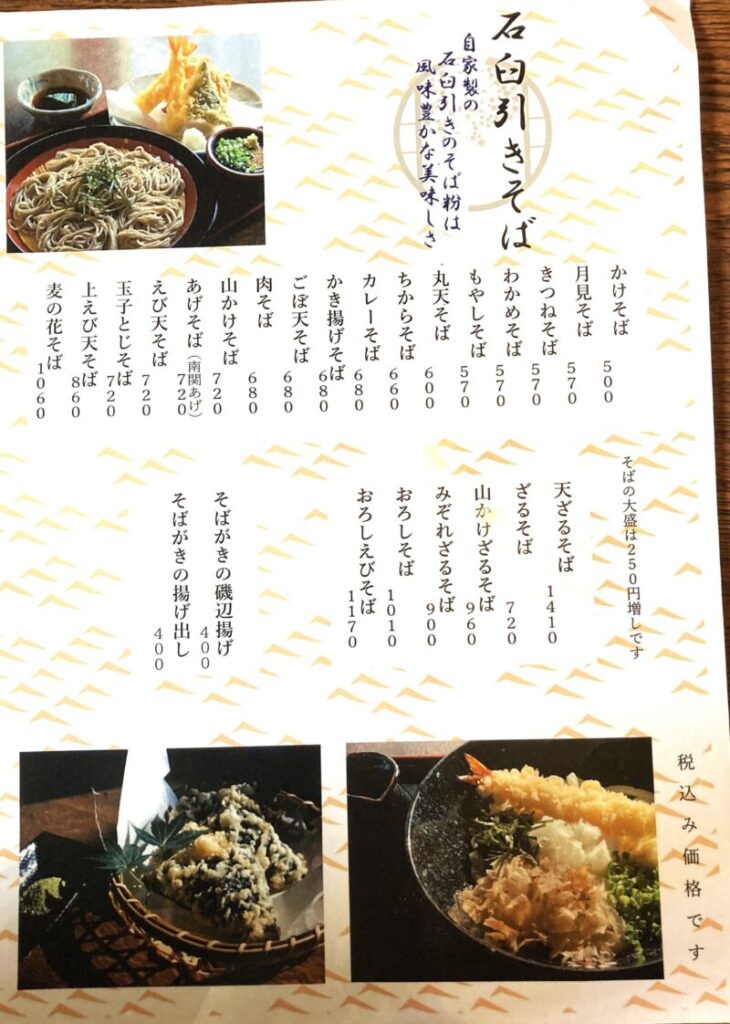 石臼引きそば
自家製の
石臼引きのそば粉は
風味豊かな美味しさ
かけそば 500
月見そば 570
きつねそば 570
わかめそば 570
もやしそば 570
丸天そば 600
ちからそば 660
カレーそば 680
かき揚げそば 680
ごぼ天そば 680
肉そば 680
山かけそば 720
あげそば(南関あげ) 720
えび天そば 720
玉子とじそば 720
上えび天そば 860
麦の花そば 1060
そばの大盛は250円増しです
天ざるそば 1410
ざるそば 720
山かけざるそば 960
みぞれざるそば 900
おろしそば 1010
おろしえびそば 1170
そばがきの磯辺揚げ 400
そばがきの揚げ出し 400
税込み価格です